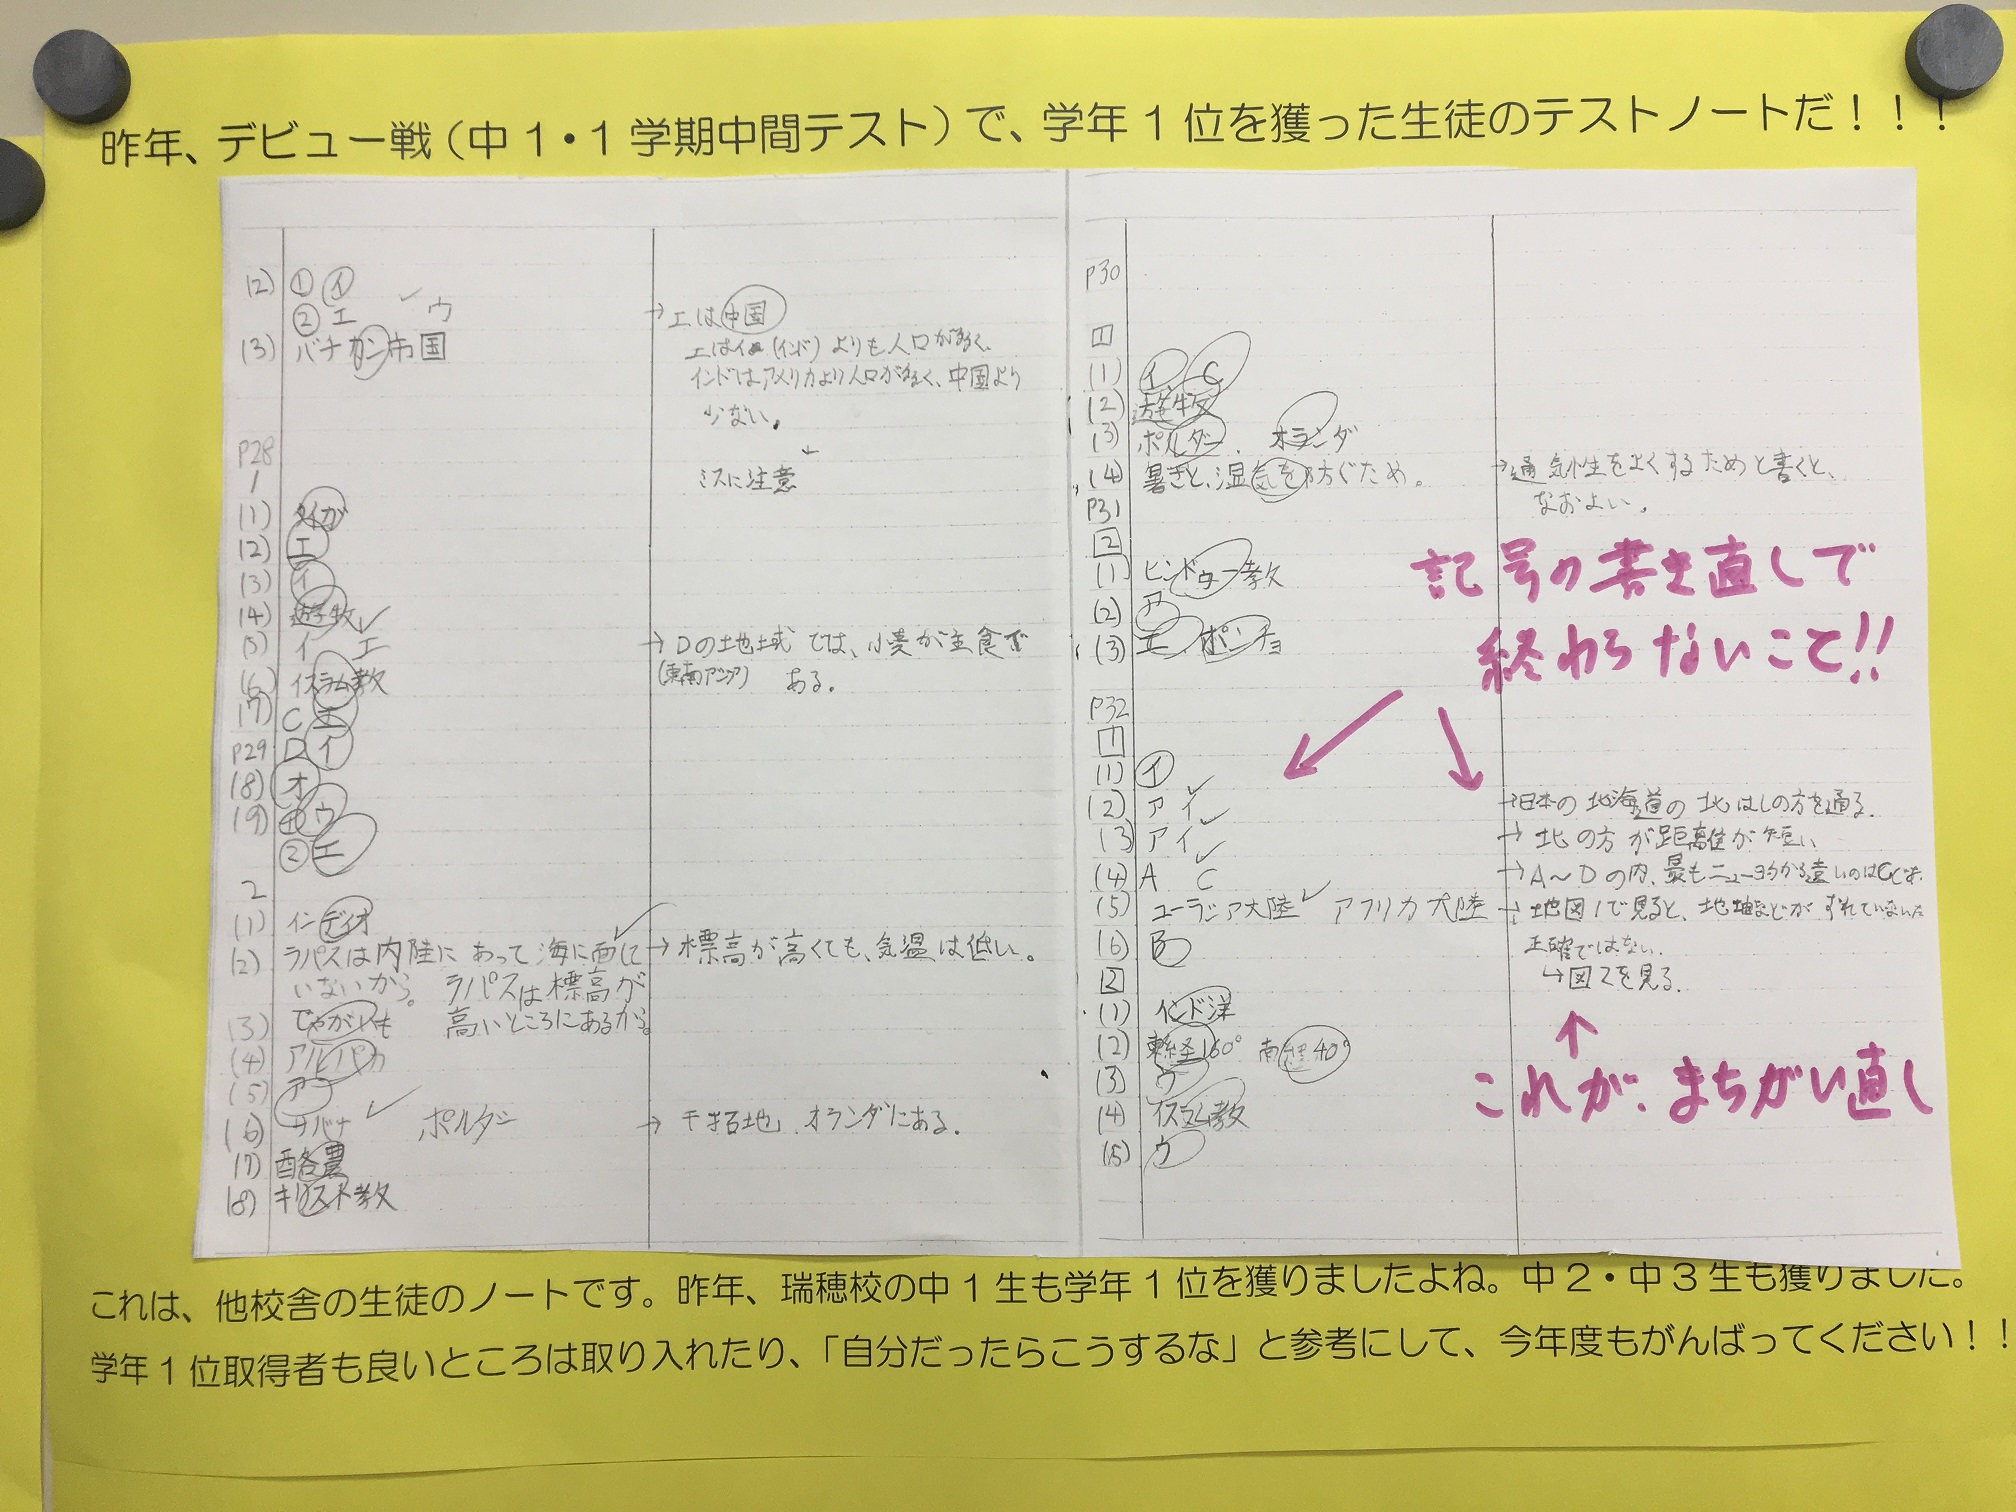 昨年、デビュー戦(中1・1学期中間テスト)で、学年1位を獲った生徒のテストノートだ!!!
(2) ① イ
② エ ウ
→エは中国
(3) バチカン市国
エは (インド) よりも人口が多く、
インドはアメリカより人口が多く、中国より
少ない。
P28
1
ミスに注意
(1) タイガ
(2) エ
(3) イ
(4) 遊牧
(5) イ エ
→Dの地域では、小麦が主食で
(東南アジア) ある。
(6) イスラム教
(7) C エ
P29 D イ
(8) オ
(9) ① ウ
② エ
2
(1) インディオ
(2) ラパスは内陸にあって海に面して
→標高が高くても、気温は低い。
いないから。 ラパスは標高が
高いところにあるから。
(3) じゃがいも
(4) アルパカ
(5) ア
(6) サバナ ポルダー
→干拓地、オランダにある。
(7) 酪農
(8) キリスト教
P30
1
(1) イ C
(2) 遊牧
(3) ポルダー、 オランダ
(4) 暑さと、湿気を防ぐため。
→通気性をよくするためと書くと、
なおよい。
P31
2
(1) ヒンドゥー教
(2) ア
(3) エ ポンチョ
記号の書き直しで
終わらないこと!!
P32
1
(1) イ
(2) ア イ
→日本の北海道の北はしの方を通る。
(3) ア イ
→北の方が距離が短い
(4) A C
→A〜Dの内、最もニューヨークから遠いのはCだ。
(5) ユーラシア大陸 アフリカ大陸
→地図1で見ると、
正確ではない。
↳図2を見る。
(6) B
2
(1) インド洋
(2) 東経160° 南緯40°
(3) ウ
(4) イスラム教
(5) ウ
これが、まちがい直し
これは、他校舎の生徒のノートです。昨年、瑞穂校の中1生も学年1位を獲りましたよね。中2・中3生も獲りました。
学年1位取得者も良いところは取り入れたり、「自分だったらこうするな」と参考にして、今年度もがんばってください!!